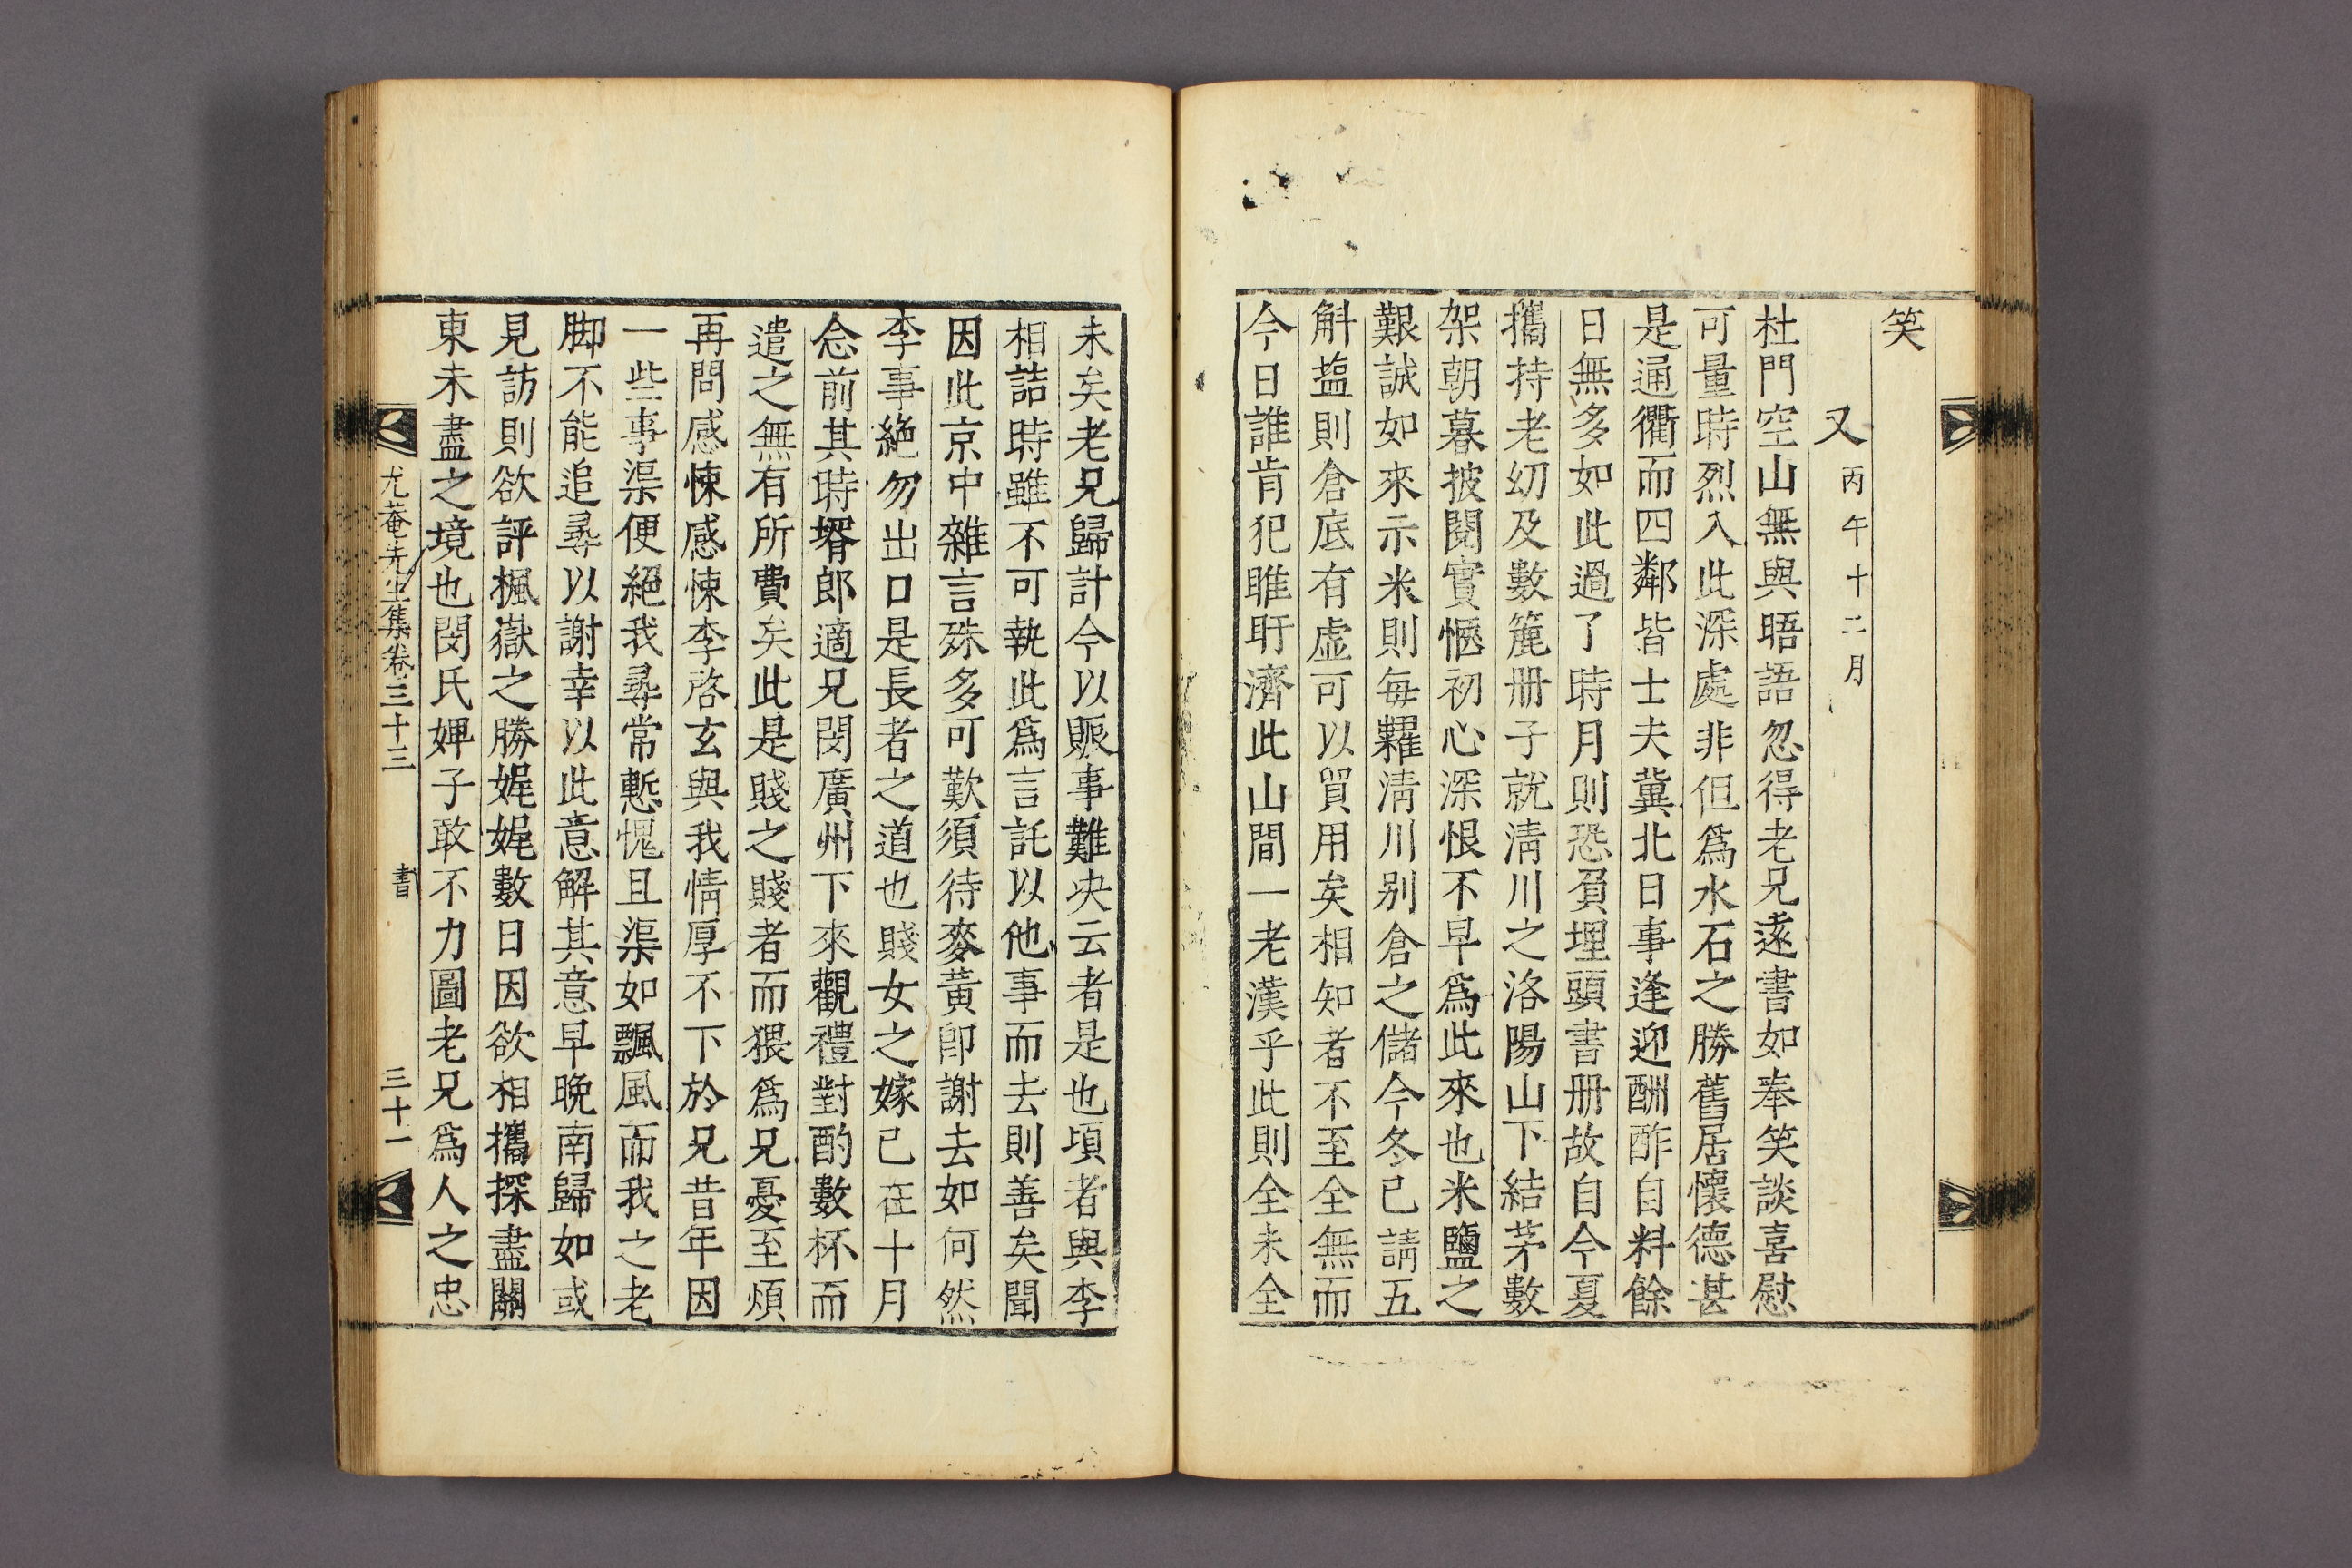 笑
又 丙午十二月
杜門空山無與晤語忽得老兄遠書如奉笑談喜慰
可量時烈入此深處非但爲水石之勝舊居懷德甚
是通衢而四鄰皆士夫冀北日事逢迎酬酢自料餘
日無多如此過了時月則恐負埋頭書册故自今夏
攜持老幼及數簏册子就淸川之洛陽山下結茅數
架朝暮披閱實愜初心深恨不早爲此來也米鹽之
艱誠如來示米則每糶淸川别倉之儲今冬已請五
斛塩則倉底有虛可以貿用矣相知者不至全無而
今日誰肯犯睢盱濟此山間一老漢乎此則全未全
未矣老兄歸計今以賑事難决云者是也頃者與李
相詰時雖不可執此爲言託以他事而去則善矣聞
因此京中雜言殊多可歎須待麥黃卽謝去如何然
李事絶勿出口是長者之道也賤女之嫁已在十月
念前其時壻郎適兄閔廣州下來觀禮對酌數杯而
遣之無有所費矣此是賤之賤者而猥爲兄憂至煩
再問感悚感悚李啓玄與我情厚不下於兄昔年因
一些事渠便絕我尋常慙愧且渠如飄風而我之老
脚不能追尋以謝幸以此意解其意早晩南歸如或
見訪則欲評楓嶽之勝娓娓數日因欲相攜探盡關
東未盡之境也閔氏婢子敢不力圖老兄爲人之忠
尤菴先生集卷三十三 書 三十一